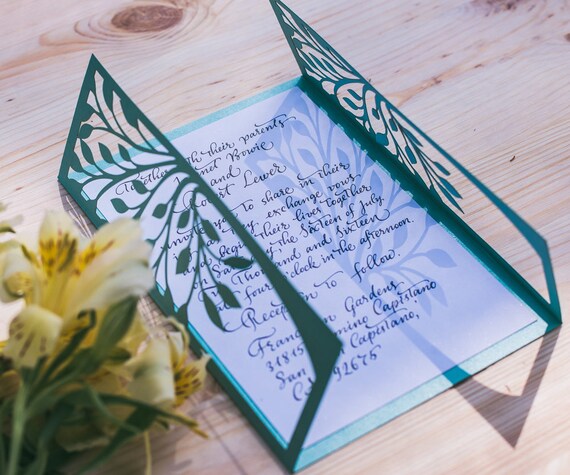 Together with their parents
Janet Bowie
and
Robert Lewer
invite you to share in their
joy as they exchange vows
and begin their lives together
on Saturday the Sixteen of July
Two Thousand and Sixteen
at four o'clock in the afternoon.
Reception to follow.
Franciscan Gardens
31815 Camino Capistano
San Juan Capistano,
CA 92675